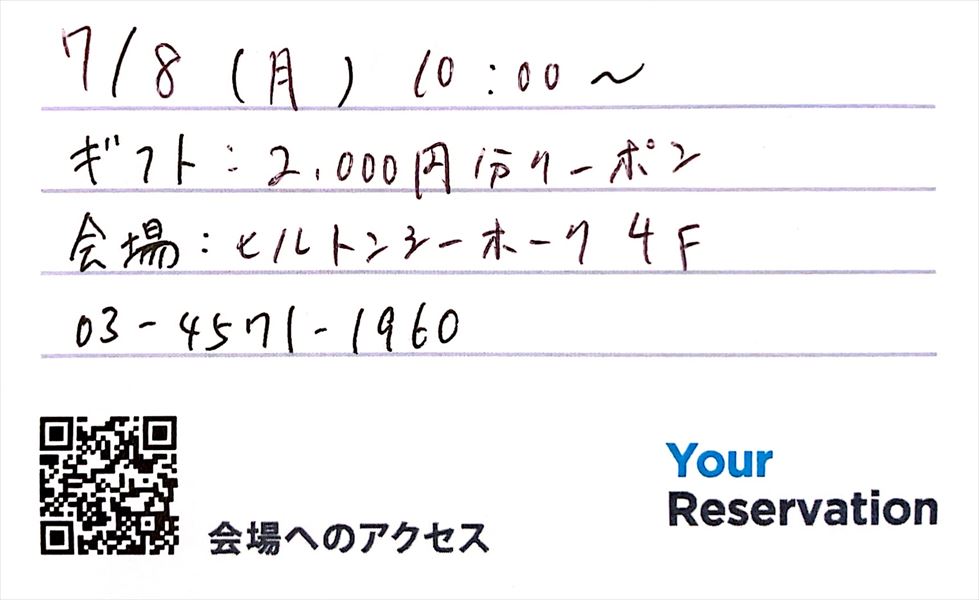 7/8（月）10:00～
ギフト：2,000円分クーポン
会場：ヒルトンシーホーク 4F
03-4571-1960
会場へのアクセス
Your
Reservation